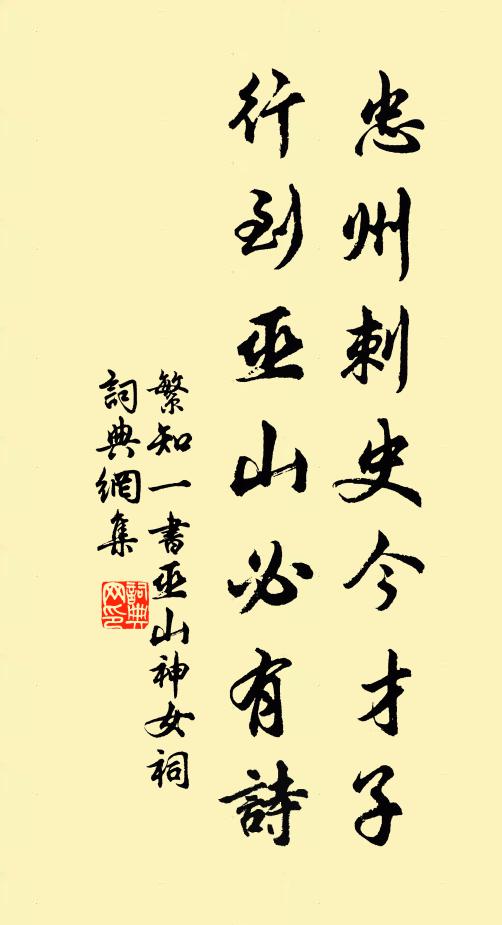 忠州刺史今才子
行到巫山必有詩
繁知一書巫山神女祠
詞典網集
詞典
网印